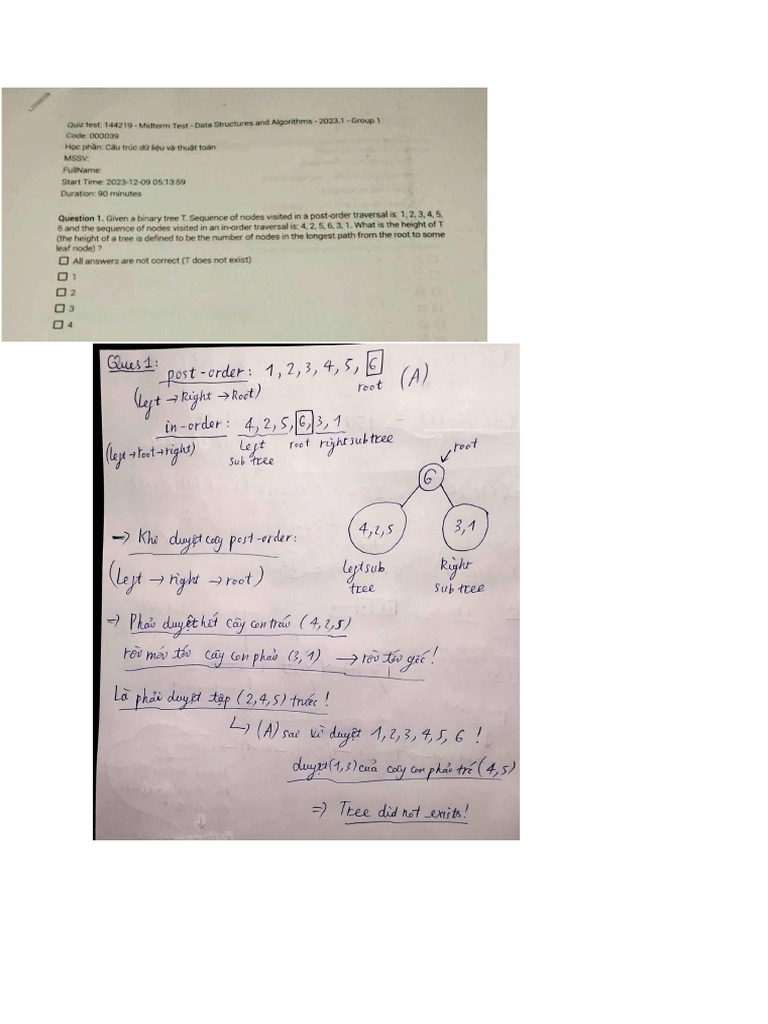 Quiz test: 144219 - Midterm Test - Data Structures and Algorithms - 2023.1 - Group 1
Code: 000039
Học phần: Cấu trúc dữ liệu và thuật toán
MSSV:
FullName:
Start Time: 2023-12-09 05:13:59
Duration: 90 minutes
Question 1. Given a binary tree T. Sequence of nodes visited in a post-order traversal is: 1, 2, 3, 4, 5,
6 and the sequence of nodes visited in an in-order traversal is: 4, 2, 5, 6, 3, 1. What is the height of T
(the height of a tree is defined to be the number of nodes in the longest path from the root to some
leaf node) ?
All answers are not correct (T does not exist)
1
2
3
4
Ques 1: post-order: 1, 2, 3, 4, 5, 6 (A)
(Left → Right → Root) root
in-order: 4, 2, 5, 6, 3, 1
(left → root → right) left root right subtree
sub tree
root
6
4, 2, 5 3, 1
Left sub Right
tree sub tree
→ Khi duyệt cây post-order:
(Left → right → root)
⇒ Phải duyệt hết cây con trái (4, 2, 5)
rồi mới tới cây con phải (3, 1) → rồi tới gốc!
Là phải duyệt tập (2, 4, 5) trước!
↳ (A) sai vì duyệt 1, 2, 3, 4, 5, 6 !
duyệt (1, 3) của cây con phải trc (4, 5)
⇒ Tree did not exits!